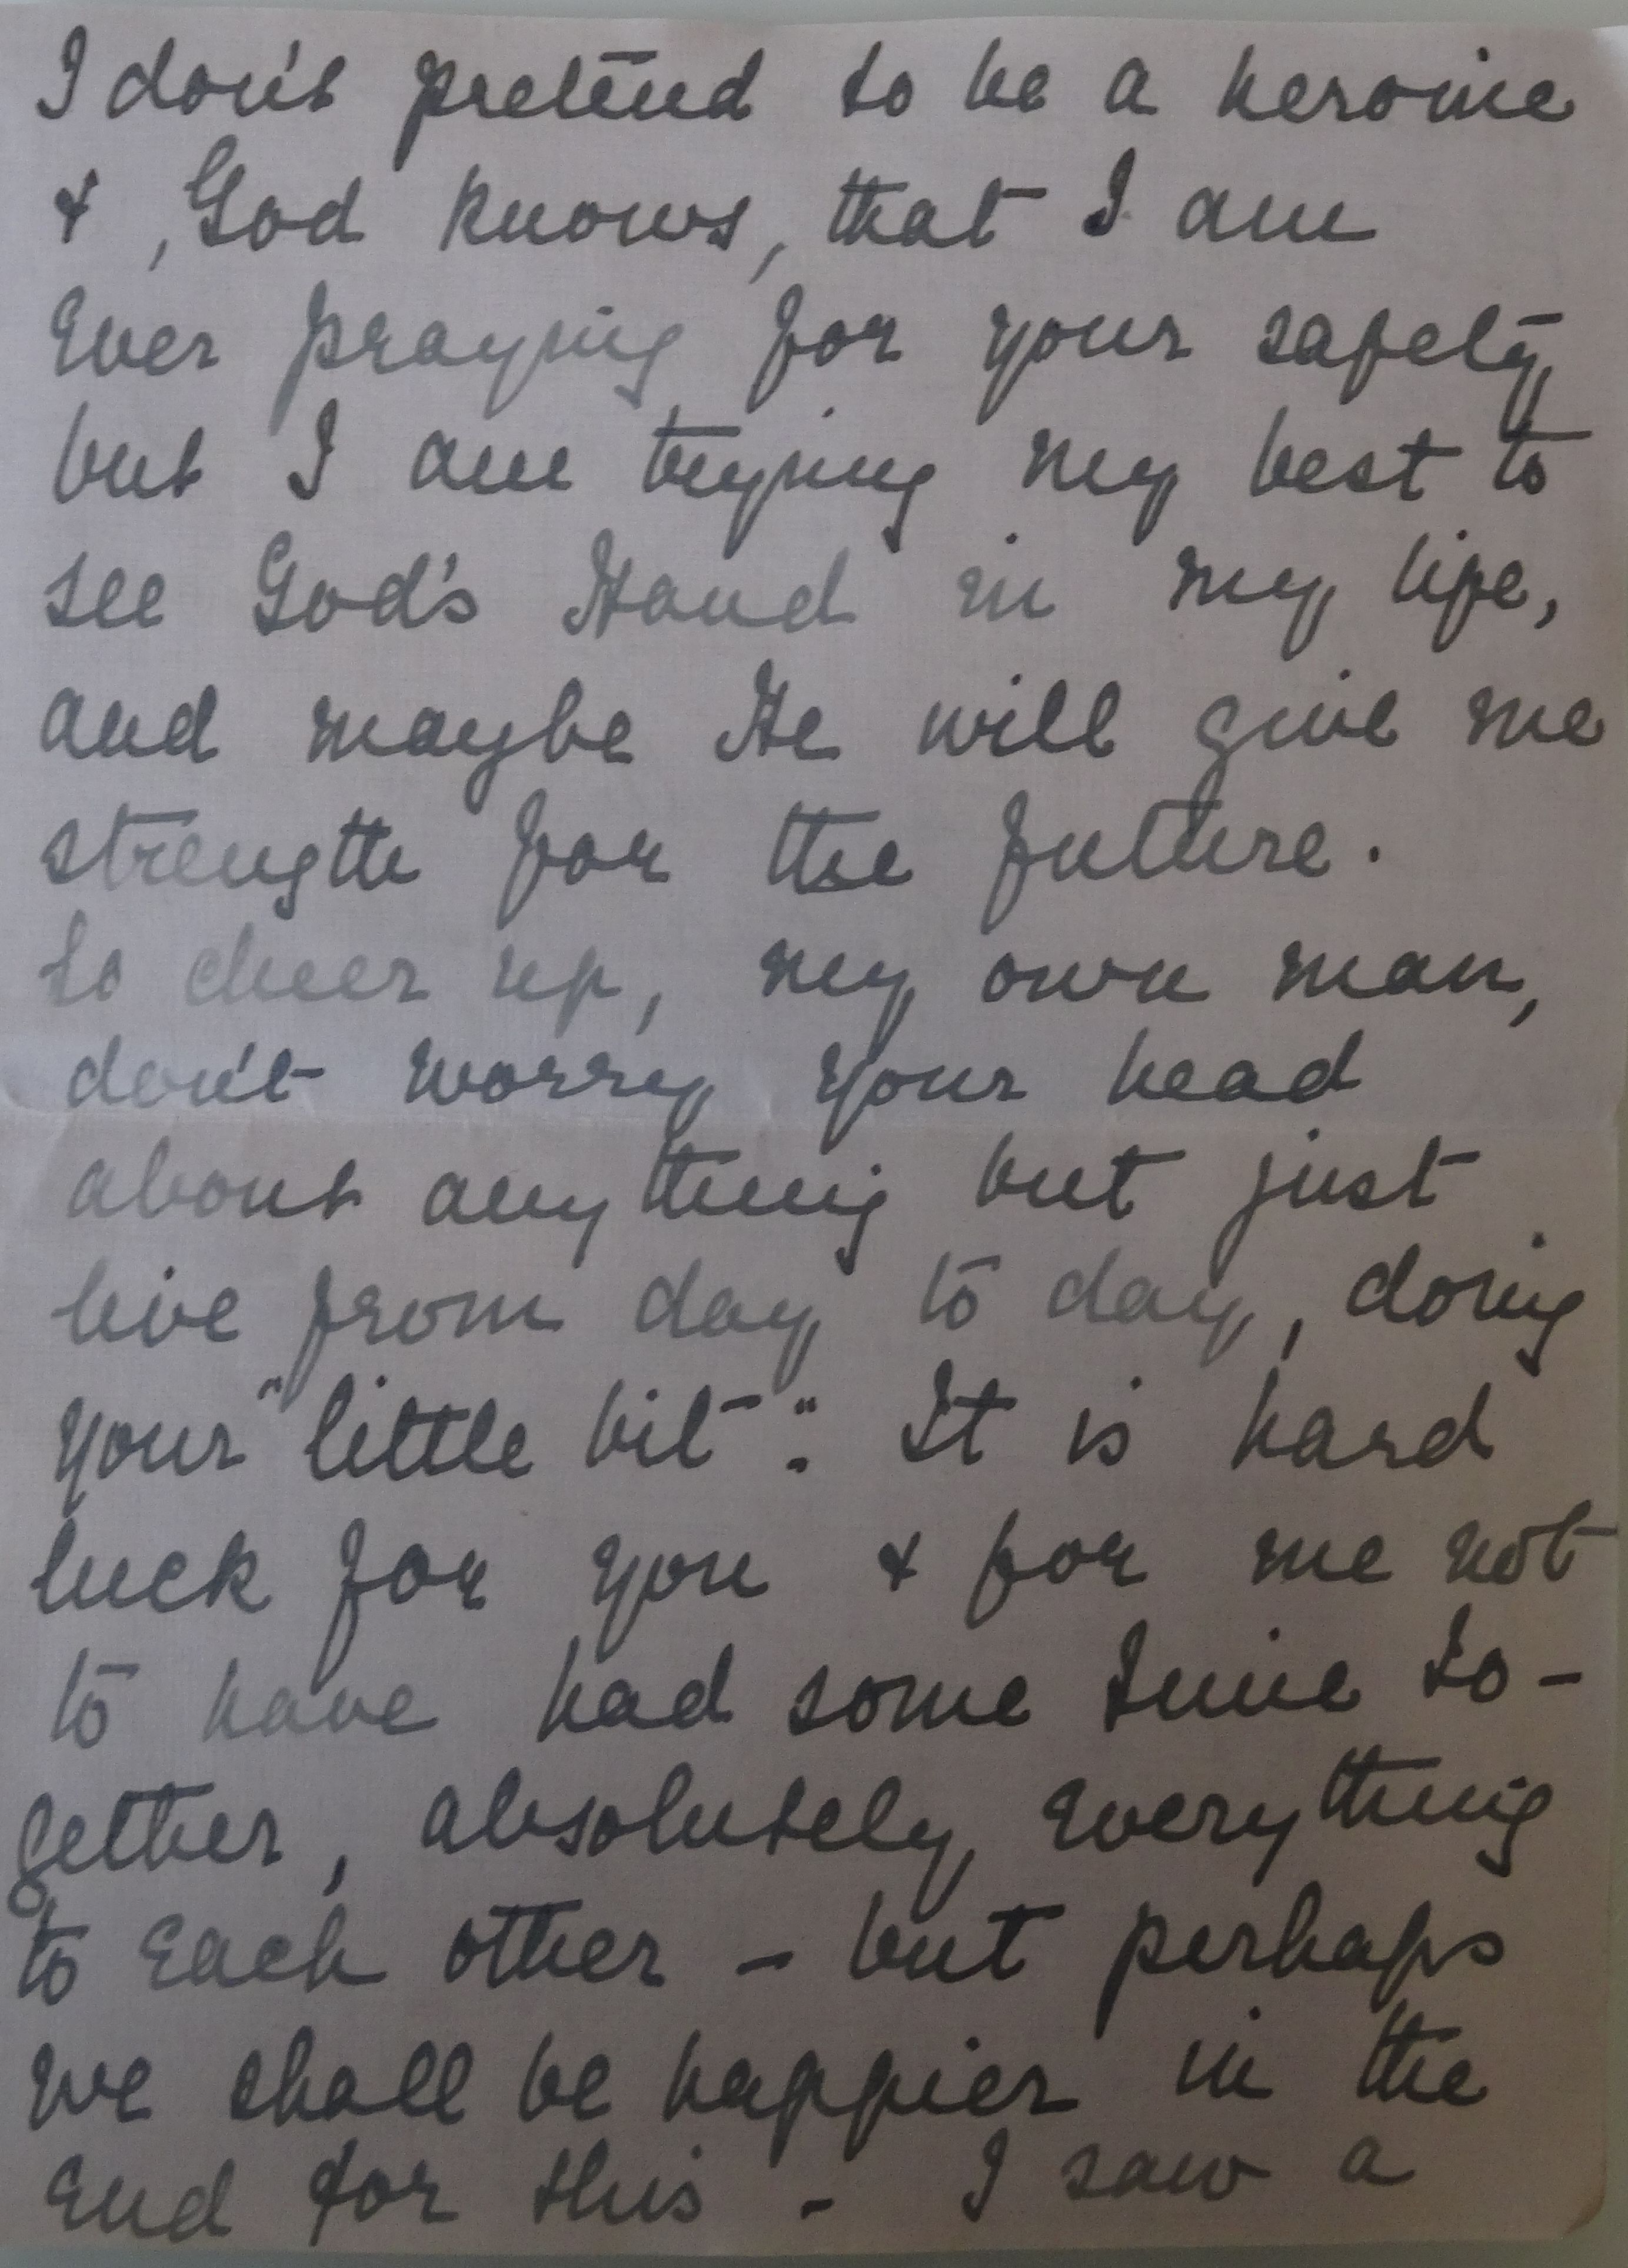 I don't pretend to be a heroine
& , God knows, that I am
ever praying for your safety,
but I am trying my best to
see God's Hand in my life,
and maybe He will give me
strength for the future.
So cheer up, my own man,
don't worry your head
about anything but just
live from day to day, doing
your "little bit". It is hard
luck for you & for me not
to have had some time to-
gether, absolutely everything
to each other - but perhaps
we shall be happier in the
end for this - I saw a